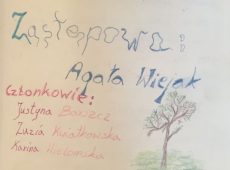 Zastępowa:
Agata Wiejak
Członkowie:
Justyna
Zuzia Kwiatkowska
Karina